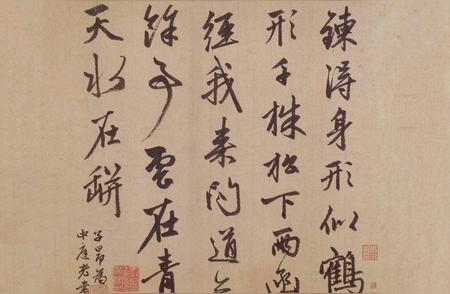 鍊得身形似鶴
形千株松下兩函
經我來問道
餘事雲在青
天水在缾
子昂為
中庭老